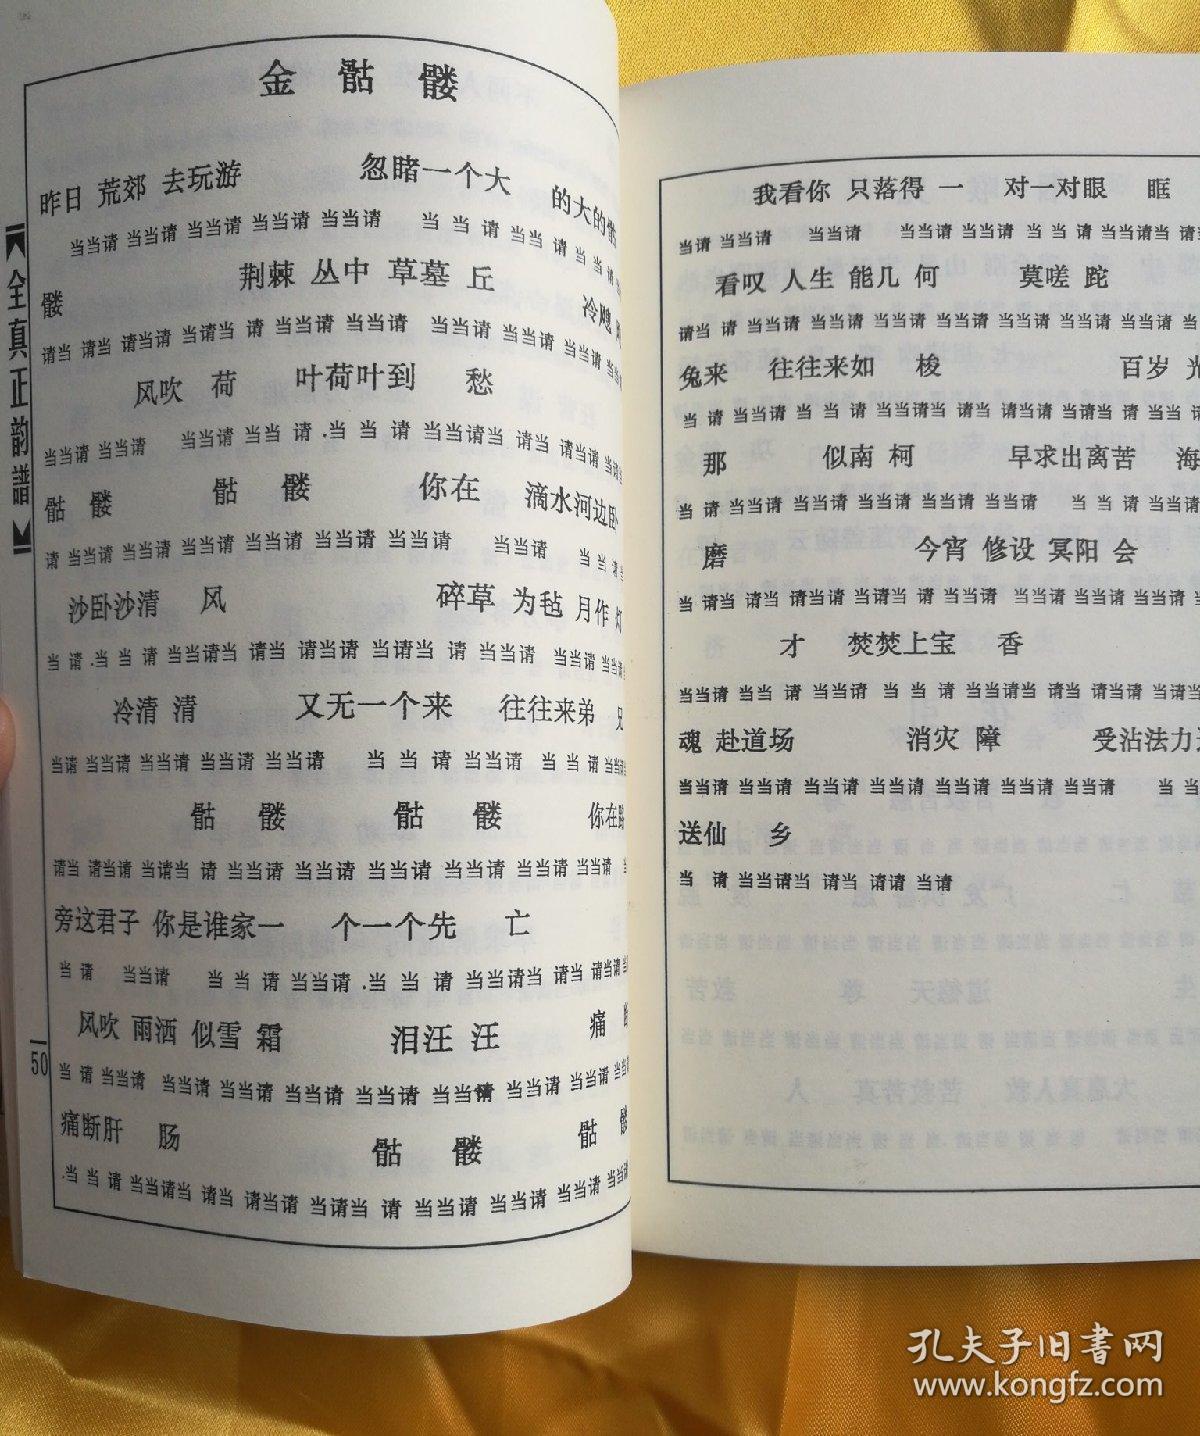 金 骷 髅
昨日 荒郊 去玩游 忽睹一个大 的大的骷
当当请 当当请 当当请 当当请 当当请 当 当 请 当当请 当 当
髅 荆棘 丛中 草墓 丘 冷飕
请当 请当 请当请 当请当 请 当当请 当当请 当当请 当当请 当当请 当当请
风吹 荷 叶荷叶到 愁
当当请 当当请 当当请 当当 请 当. 当 当 请 当当请当 请当 请当请 当当请
骷 髅 骷 髅 你在 滴水河边卧
请 当当请 当当请 当当请 当当请 当当请 当当请 当当请 当当请 当 当
沙卧沙清 风 碎草 为毡 月作 灯
当 请 当. 当 当 请 当当请当 请当 请当请 当当请当 请 当当请 当当请
冷清 清 又无一个来 往往来弟 兄
当请 当当请 当当请 当当请 当当请 当 当 请 当当请 当 当 请
骷 髅 骷 髅 你在路
请当 请当请 当请当 请 当当请 当当请 当当请 当当请 当当请 当当请
旁这君子 你是谁家一 个一个先 亡
当 请 当当请 当 当 请 当当请 当. 当 当 请 当当请当 请当 请当请
风吹 雨洒 似雪 霜 泪汪 汪 痛
当 请 当当请 当当请 当当请 当当请 当当请 当当请 当当请 当当请
痛断肝 肠 骷 髅 骷 髅
当 当 请 当当请当 请当 请当请 当请当 请 当当请 当当请 当当请
全真正韵譜
50
我看你 只落得 一 对一对眼 眶
当请 当当请 当当请 当当请 当当请 当 当 请 当当请当
看叹 人生 能几 何 莫嗟 跎
请当 请 当当请 当当请 当当请 当当请 当当请 当当请 当当请
兔来 往往来如 梭 百岁 光
当 请 当当请 当 当 请 当当请当 请当 请当请 当请当 请 当当
那 似南 柯 早求出离苦 海
当 请 当当请 当当请 当当请 当当请 当当请 当 当 请 当当请
磨 今宵 修设 冥阳 会
当 请当 请当 请当请 当请当 请 当当请 当当请 当当请 当当请
才 焚焚上宝 香
当当请 当当 请 当当请 当 当 请 当当请当 请当 请当请
魂 赴道场 消灾 障 受沾法力
当当请 当当请 当当请 当当请 当当请 当当请 当当请 当 当
送仙 乡
当 请 当当请当 请当 请请 当请
孔夫子旧书网
www.kongfz.com